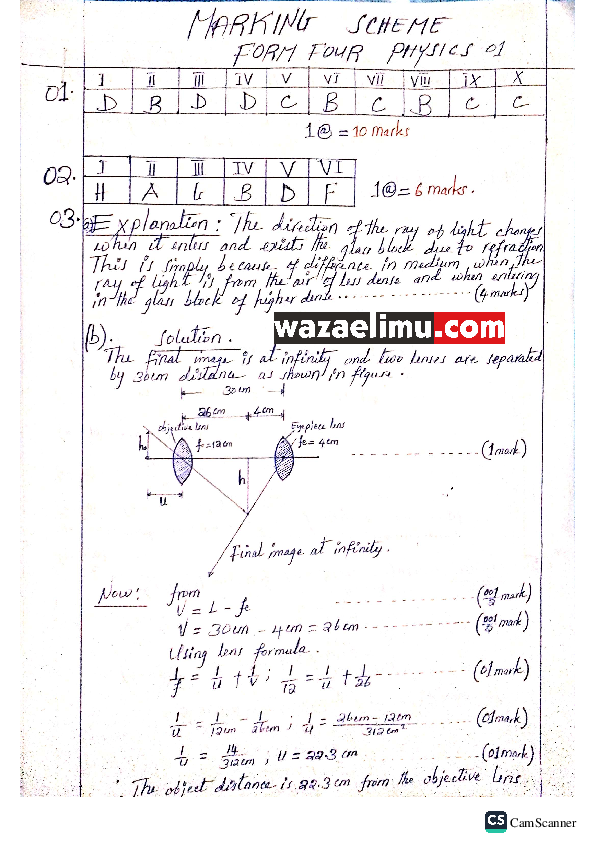 MARKING SCHEME
FORM FOUR PHYSICS 01
01. I II III IV V VI VII VIII IX X
D B D D C B C B C C
1@ = 10 marks
02. I II III IV V VI
H A G B D F
1@ = 6 marks.
03. a) Explanation: The direction of the ray of light changes
when it enters and exists the glass block due to refraction
This is simply because of difference in medium when the
ray of light is from the air of less dense and when entering
in the glass block of higher dense ---------- (4 marks)
wazaelimu.com
(b). Solution.
The final image is at infinity and two lenses are separated
by 30cm distance as shown in figure.
30cm
26cm 4cm
objective lens Eyepiece lens
h fo = 12cm fe = 4cm (1 mark)
h
u
Final image at infinity.
Now: from
V = L - fe (00½ mark)
V = 30cm - 4cm = 26cm (00½ mark)
Using lens formula..
1/f = 1/u + 1/v ; 1/12 = 1/u + 1/26 (01 mark)
1/u = 1/12cm - 1/26cm ; 1/u = 26cm - 12cm / 312cm² (01 mark)
1/u = 14/312cm ; u = 22.3 cm (01 mark)
∴ The object distance is 22.3cm from the objective lens.
CS CamScanner